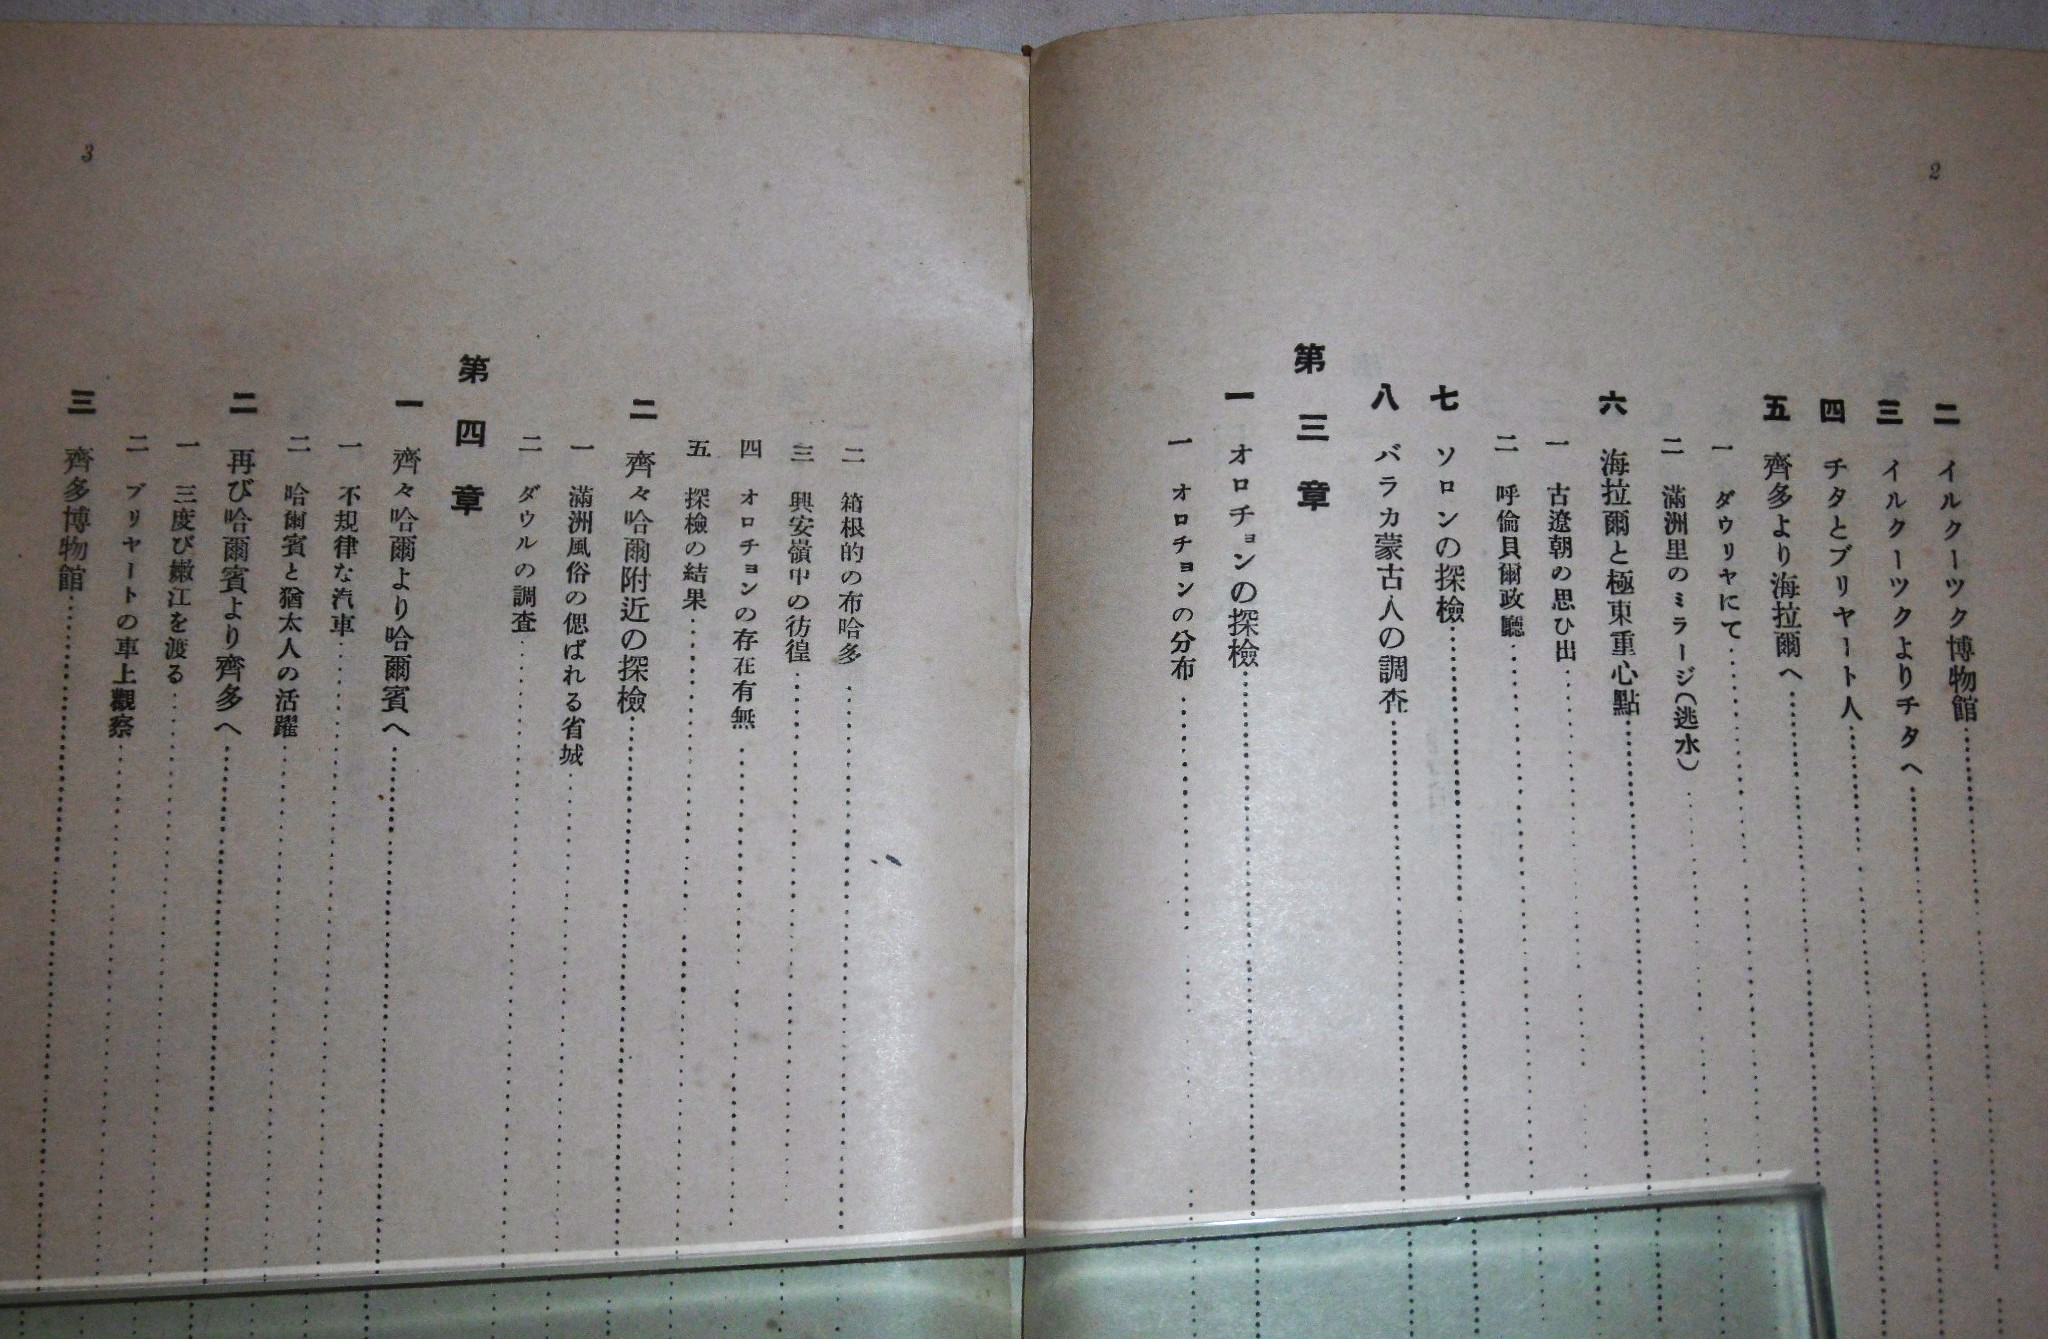 2
二 イルクーツク博物館
三 イルクーツクよりチタへ
四 チタとブリヤート人
五 齊多より海拉爾へ
一 ダウリヤにて
二 滿洲里のミラージ(逃水)
六 海拉爾と極東重心點
一 古遼朝の思ひ出
二 呼倫貝爾政廳
七 ソロンの探檢
八 バラカ蒙古人の調査
第三章
一 オロチョンの探檢
一 オロチョンの分布
3
二 箱根的の布哈多
三 興安嶺中の彷徨
四 オロチョンの存在有無
五 探檢の結果
二 齊々哈爾附近の探檢
一 滿洲風俗の偲ばれる省城
二 ダウルの調査
第四章
一 齊々哈爾より哈爾賓へ
一 不規律な汽車
二 哈爾賓と猶太人の活躍
二 再び哈爾賓より齊多へ
一 三度び嫩江を渡る
二 ブリヤートの車上觀察
三 齊多博物館